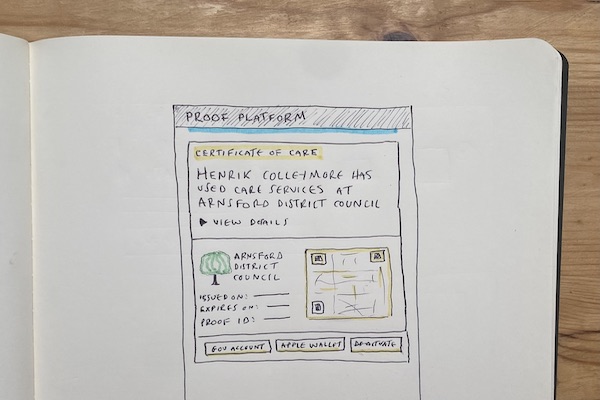 PROOF PLATFORM
CERTIFICATE OF CARE
HENRIK COLLEYMORE HAS
USED CARE SERVICES AT
ARNSFORD DISTRICT COUNCIL
▶ VIEW DETAILS
ARNSFORD
DISTRICT
COUNCIL
ISSUED ON:
EXPIRES ON:
PROOF ID:
GOV ACCOUNT
APPLE WALLET
DEACTIVATE